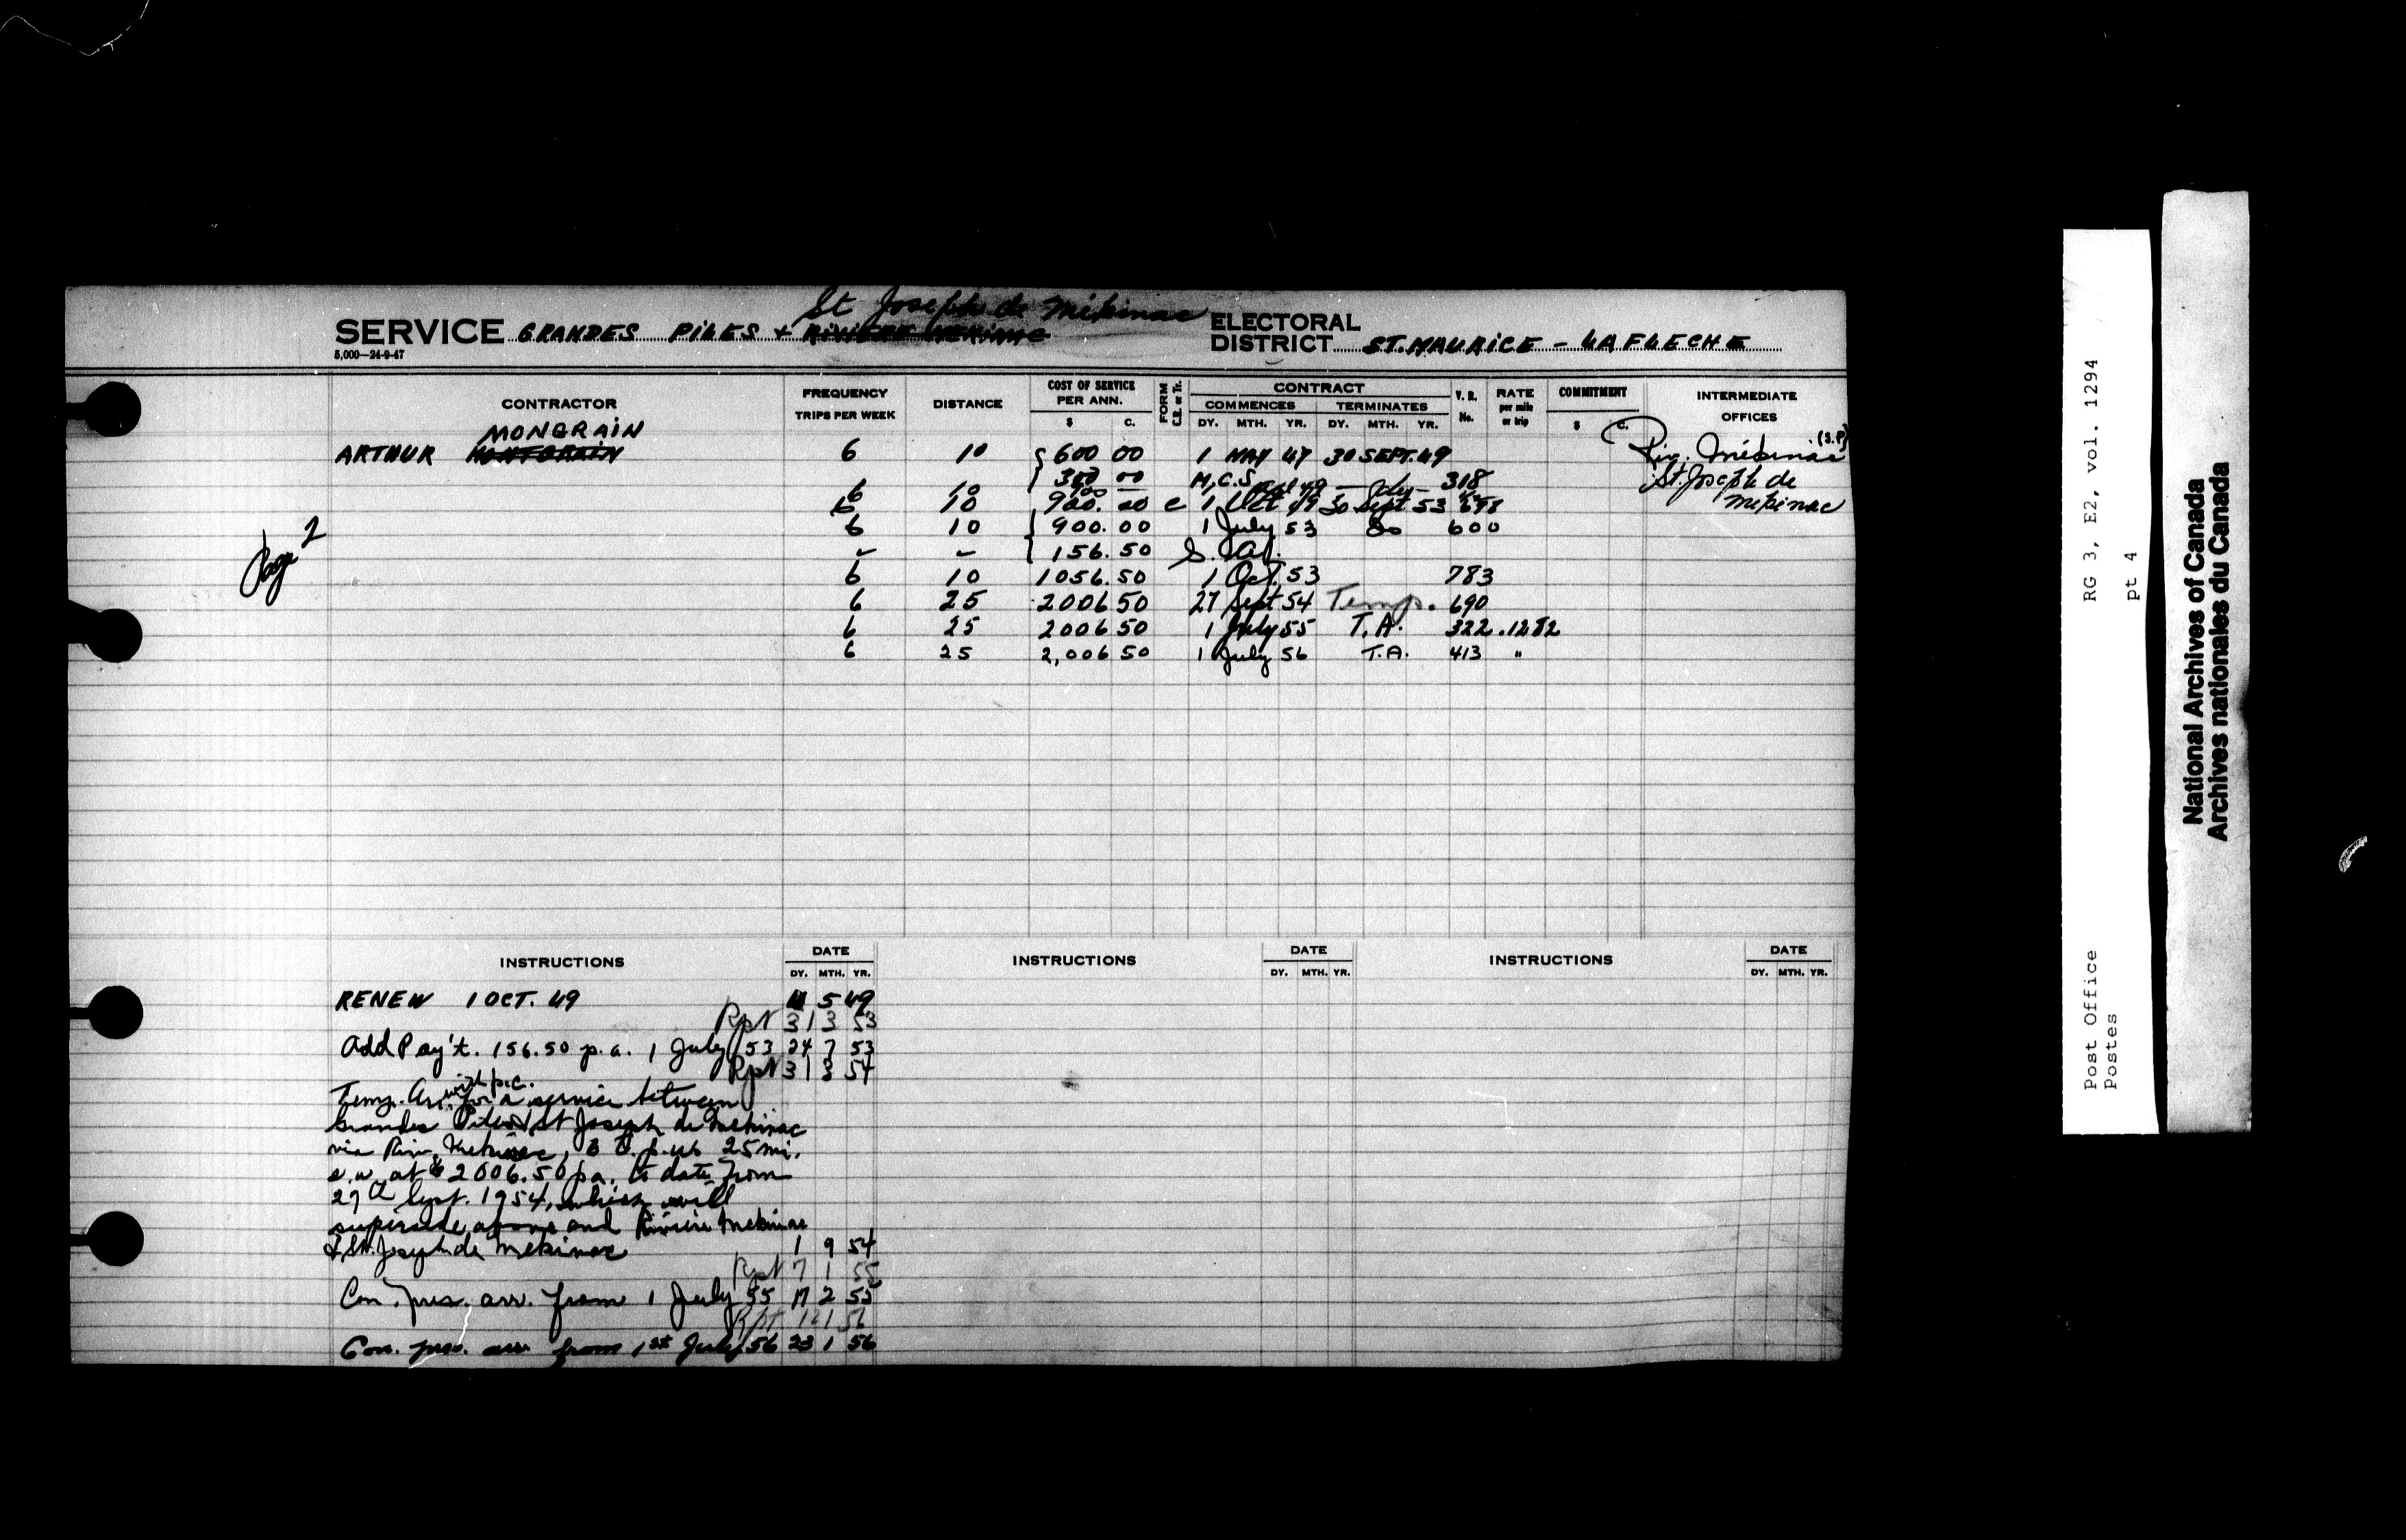 St Joseph de Mékinac
SERVICE GRANDES PILES + RIVIERE MEKINAC
ELECTORAL DISTRICT ST. MAURICE - LAFLECHE
5,000—24-9-47
CONTRACTOR
FREQUENCY TRIPS PER WEEK
DISTANCE
COST OF SERVICE PER ANN. $ C.
FORM C.R. or Tr.
CONTRACT
COMMENCES DY. MTH. YR.
TERMINATES DY. MTH. YR.
V. R. No.
RATE per mile or trip
COMMITMENT $ C.
INTERMEDIATE OFFICES
MONGRAIN
ARTHUR 6 10 600 00 1 MAY 47 30 SEPT. 49
Riv. Mékinac (S.P)
6 10 300 00 M.C.S. 318
St. Joseph de
6 10 900. 00 c 1 Oct 49 30 Sept 53
Mekinac
6 10 900.00 1 July 53 Do 600
Page 2
- - 156.50
6 10 1056.50 1 Oct. 53 783
6 25 2006 50 27 Sept 54 Temp. 690
6 25 2006 50 1 July 55 T.A. 322 .1282
6 25 2,006 50 1 July 56 T.A. 413 "
INSTRUCTIONS DATE DY. MTH. YR.
INSTRUCTIONS DATE DY. MTH. YR.
INSTRUCTIONS DATE DY. MTH. YR.
RENEW 1 OCT. 49 5 49
Rpt 31 3 53
Add Pay't. 156.50 p.a. 1 July 53 24 7 53
Rpt 31 3 54
with p.c.
Temp. Arr. for a service between
Grandes Piles & St Joseph de Mekinac
via Riv. Mekinac, 6 t. p. wk 25 mi.
e.w. at $2006.50 pa. to date from
27th Sept. 1954, which will
supersede above and Riviere Mekinac
& St. Joseph de Mekinac 1 9 54
Rpt 7 1 55
Con. pres. arr. from 1 July 55 17 2 55
Rpt
Con. pres. arr. from 1st July 56 23 1 56
Post Office RG 3, E2, vol. 1294
Postes pt 4
National Archives of Canada
Archives nationales du Canada